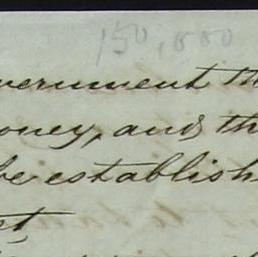 150,000
vernment th
oney, and th
be establish
et